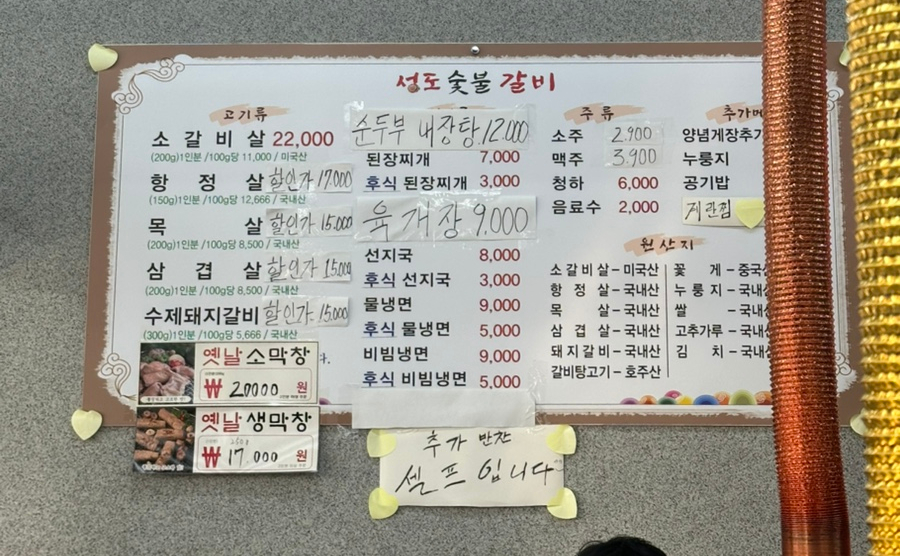 석도 숯불 갈비
고기류
소 갈 비 살 22,000
(200g)1인분 /100g당 11,000 / 미국산
항 정 살 할인가 17.000
(150g)1인분 /100g당 12,666 / 국내산
목 살 할인가 15.000
(200g)1인분 /100g당 8,500 / 국내산
삼 겹 살 할인가 15.000
(200g)1인분 /100g당 8,500 / 국내산
수제돼지갈비 할인가 15.000
(300g)1인분 /100g당 5,666 / 국내산
옛날 소막창
₩ 20000 원
옛날 생막창
250g
₩ 17.000 원
순두부 내장탕.12.000
된장찌개 7,000
후식 된장찌개 3,000
육개장 9.000
선지국 8,000
후식 선지국 3,000
물냉면 9,000
후식 물냉면 5,000
비빔냉면 9,000
후식 비빔냉면 5,000
추가 반찬
셀프 입니다
주 류
소주 2.900
맥주 3.900
청하 6,000
음료수 2,000
추가메
양념게장추가
누룽지
공기밥
계란찜
원 산 지
소 갈 비 살 – 미국산
항 정 살 – 국내산
목 살 – 국내산
삼 겹 살 – 국내산
돼 지 갈 비 – 국내산
갈비탕고기 – 호주산
꽃 게 – 중국산
누 룽 지 – 국내
쌀 – 국내
고추가루 – 국내
김 치 – 국내